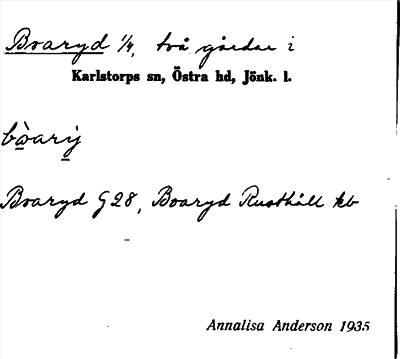 Boaryd 1/4, två gårdar i
Karlstorps sn, Östra hd, Jönk. l.
bo̱ari̱j
Boaryd G28, Boaryd Rusthåll kb
Annalisa Anderson 1935